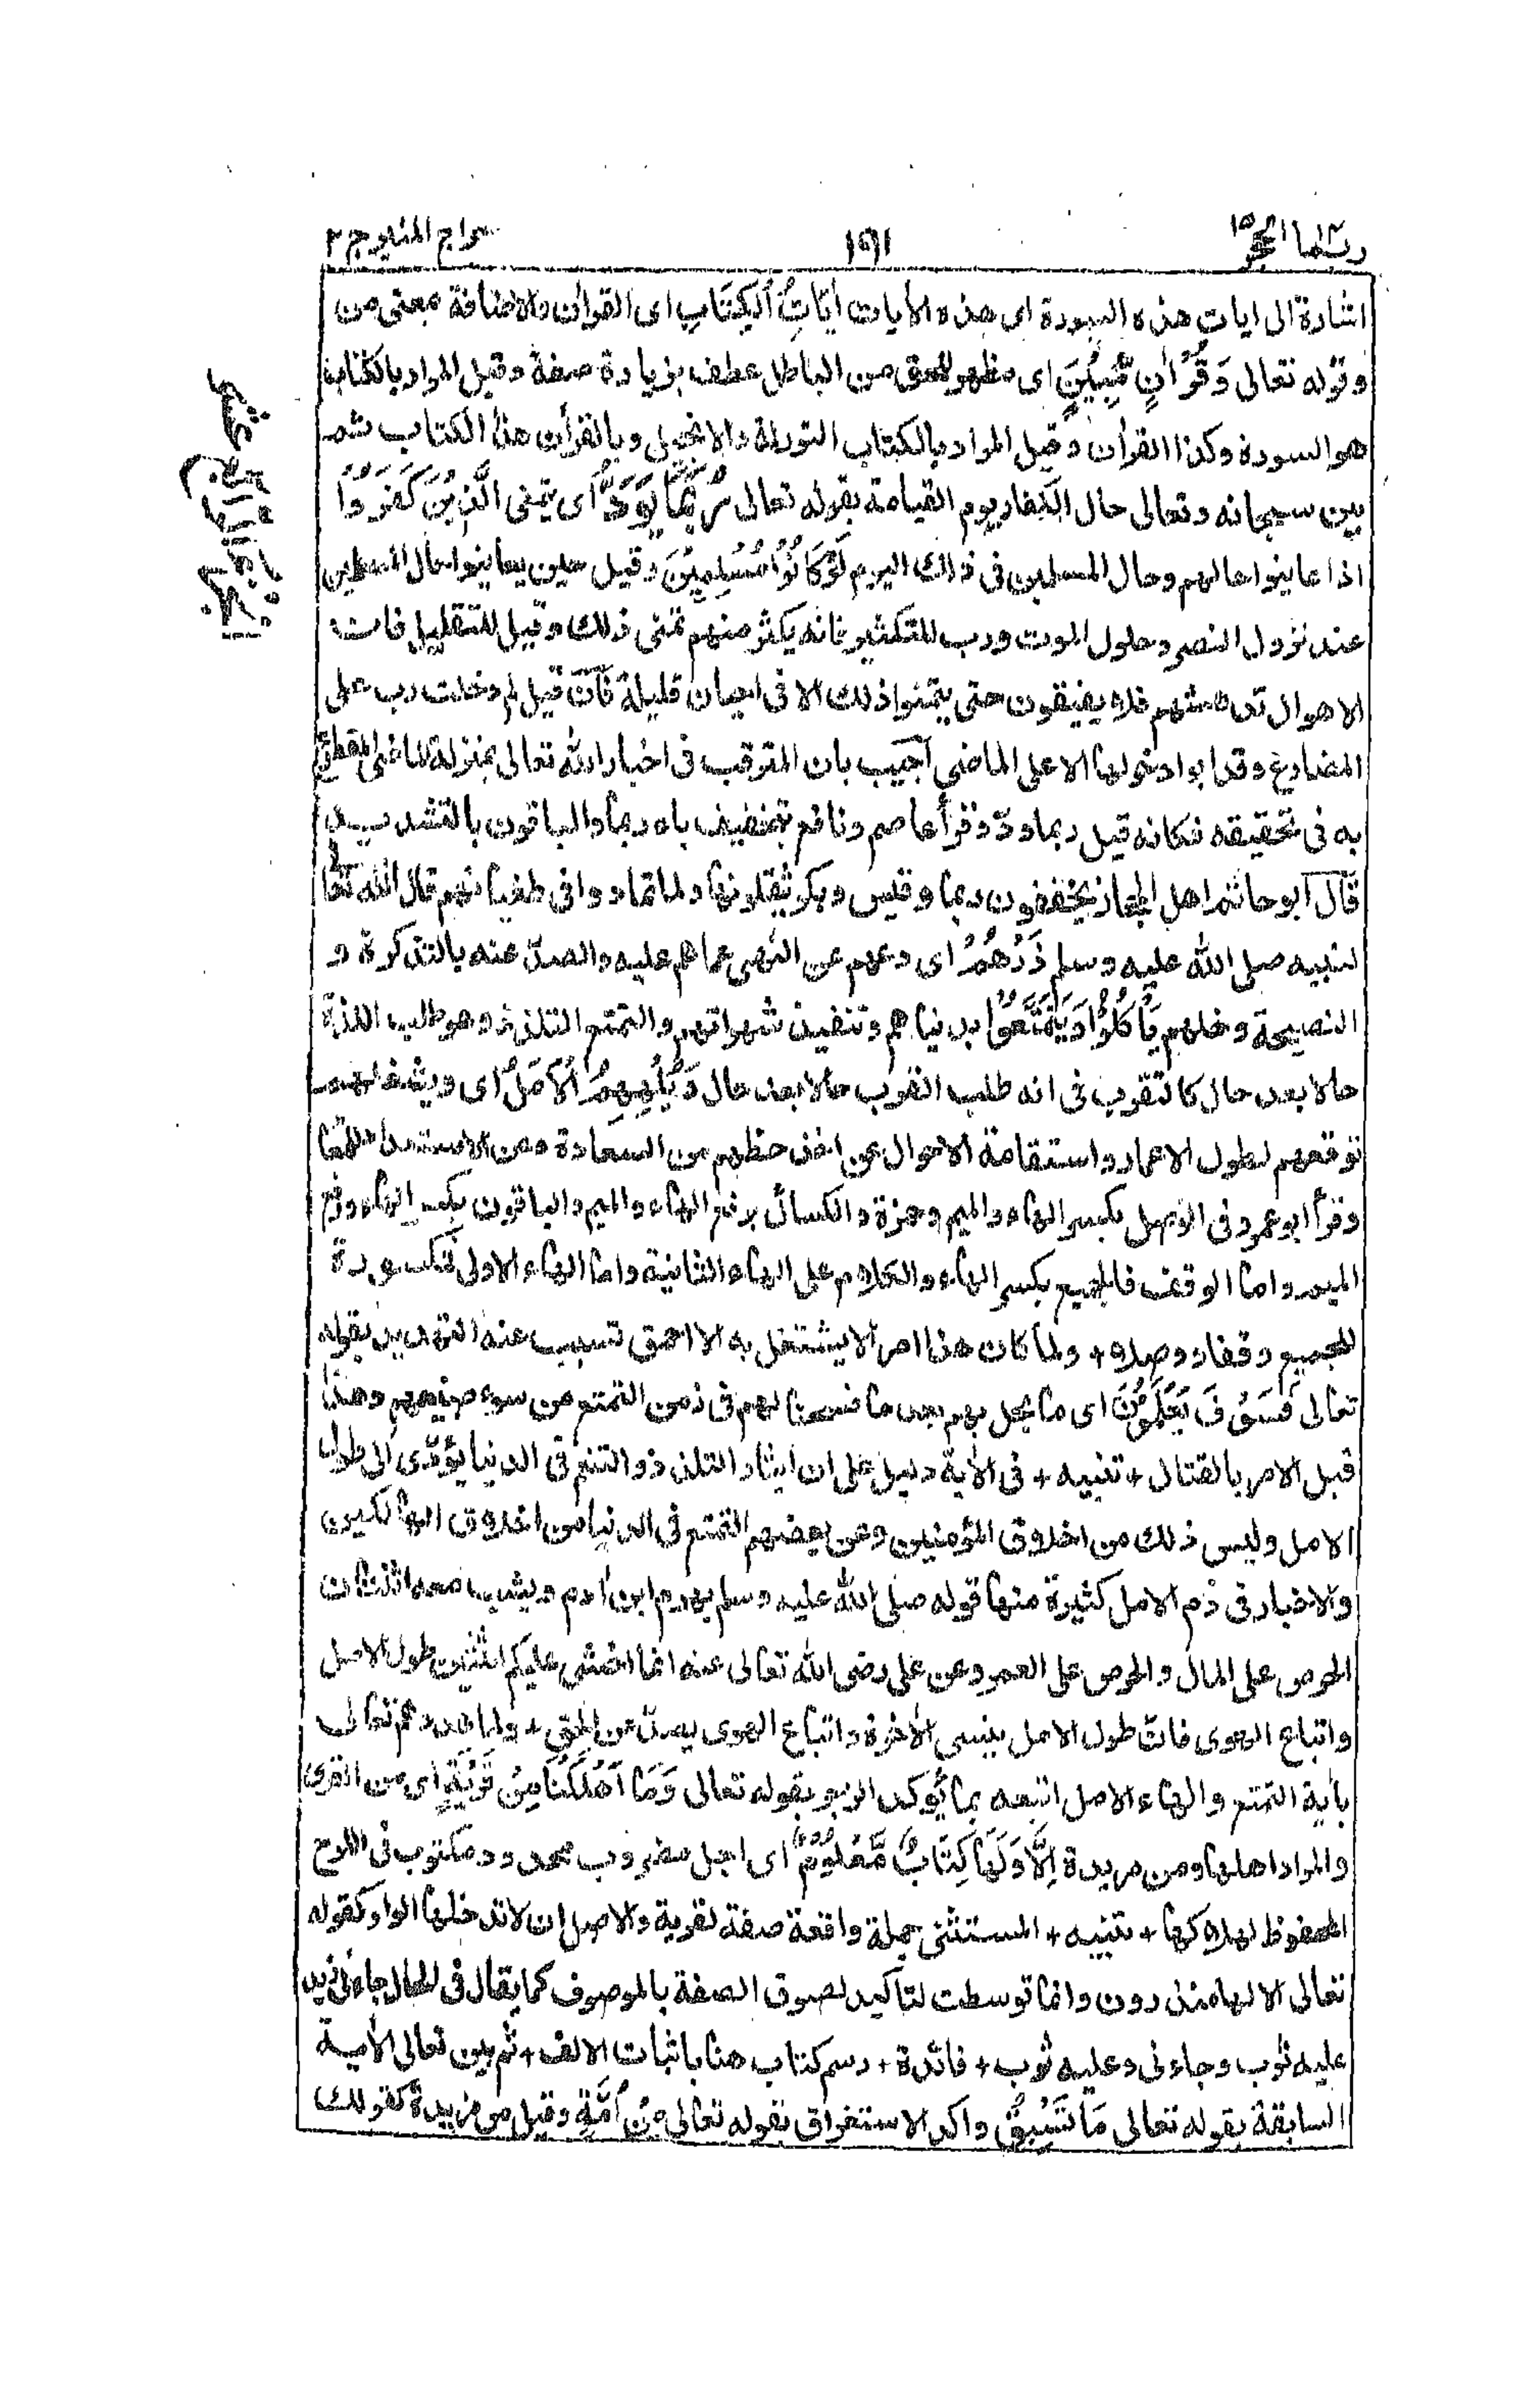 ربما ١٤ الحجر ١٥
١٩١
سراج المنير ج ٢
اشارة الى ايات هذه السورة اى هذه الأيات اٰيَاتُ الْكِتَابِ اى القرأن والاضافة بمعنى من
وقوله تعالى وَقُرْاٰنٍ مُّبِيْنٍ اى مظهر للحق من الباطل عطف بزيادة صفة وقيل المراد بالكتاب
هو السورة وكذا القرأن وقيل المراد بالكتاب التورىة والانجيل وبالقرأن هذا الكتاب ثم
بين سبحانه وتعالى حال الكفار يوم القيامة بقوله تعالى رُبَمَا يَوَدُّ اى يتمنى الَّذِيْنَ كَفَرُوْا
اذا عاينوا حالهم وحال المسلمين فى ذلك اليوم لَوْ كَانُوْا مُسْلِمِيْنَ وقيل حين يعاينوا حال المسلمين
عند نزول النصر وحلول الموت ورب للتكثير فانه يكثر منهم تمنى ذلك وقيل للتقليل فان
الاهوال تدهشهم فلا يفيقون حتى يتمنوا ذلك الا فى احيان قليلة فَاِنْ قيل لم دخلت رب على
المضارع وقد ابوا دخولها الا على الماضى اُجيب بان المترقب فى اخبار الله تعالى بمنزلة الماضى المقطوع
به فى تحقيقه فكانه قيل ربما ودّ وقرأ عاصم ونافع بتخفيف باء ربما والباقون بالتشديد
قال ابو حاتم اهل الحجاز يخففون ربما وقيس وبكر يثقلونها ولما تمادوا فى طغيانهم قال الله تعا
لنبيه صلى الله عليه وسلم ذَرْهُمْ اى دعهم عن النهى عما هم عليه والصدّ عنه بالتذكرة و
النصيحة وخلهم يَأْكُلُوْا وَيَتَمَتَّعُوْا بدنياهم وتنفيذ شهواتهم والتمتع التلذذ وهو طلب اللذة
حالا بعد حال كالتقرب فى انه طلب القرب حالا بعد حال وَيُلْهِهِمُ الْاَمَلُ اى ويشغلهم
توقعهم لطول الاعمار واستقامة الاحوال عن اخذ حظهم من السعادة وعن الاستعداد للمعا
وقرأ ابو عمرو فى الوصل بكسر الهاء والميم وحمزة والكسائى برفع الهاء والميم والباقون بكسر الهاء ورفع
الميم واما الوقف فالجميع بكسر الهاء والكلام على الهاء الثانية واما الهاء الاولى فمكسورة
للجميع وقفا ووصلا + ولما كان هذا امرا لا يشتغل به الا احمق تسبب عنه التهديد بقوله
تعالى فَسَوْفَ يَعْلَمُوْنَ اى ما يحل بهم بعد ما فسحنا لهم فى زمن التمتع من سوء صنيعهم وهذا
قبل الامر بالقتال + تنبيه + فى الأية دليل على ان ايثار التلذذ والتنعم فى الدنيا يؤدى الى طول
الامل وليس ذلك من اخلاق المؤمنين وعن بعضهم التمتع فى الدنيا من اخلاق الهالكين
والاخبار فى ذم الامل كثيرة منها قوله صلى الله عليه وسلم يهرم ابن أدم ويشب معه اثنتان
الحرص على المال والحرص على العمر وعن على رضى الله تعالى عنه انما اخشى عليكم اثنتين طول الامل
واتباع الهوى فان طول الامل ينسى الأخرة واتباع الهوى يصدّ عن الحق + ولما هددهم تعالى
بأية التمتع والهاء الامل اتبعه بما يؤكد الزجر بقوله تعالى وَمَا اَهْلَكْنَا مِنْ قَرْيَةٍ اى من القرى
والمراد اهلها ومن مزيدة اِلَّا وَلَهَا كِتَابٌ مَّعْلُوْمٌ اى اجل مضروب محدود مكتوب فى اللوح
المحفوظ لهلاكها + تنبيه + المستثنى جملة واقعة صفة لقرية والاصل ان لا تدخلها الواو كقوله
تعالى الا لها منذرون وانما توسطت لتاكيد لصوق الصفة بالموصوف كما يقال فى الحال جاءنى زيد
عليه ثوب وجاءنى وعليه ثوب + فائدة + رسم كتاب هنا باثبات الالف + ثم بين تعالى الأية
السابقة بقوله تعالى مَا تَسْبِقُ واكد الاستغراق بقوله تعالى مِنْ اُمَّةٍ وقيل من مزيدة كقولك